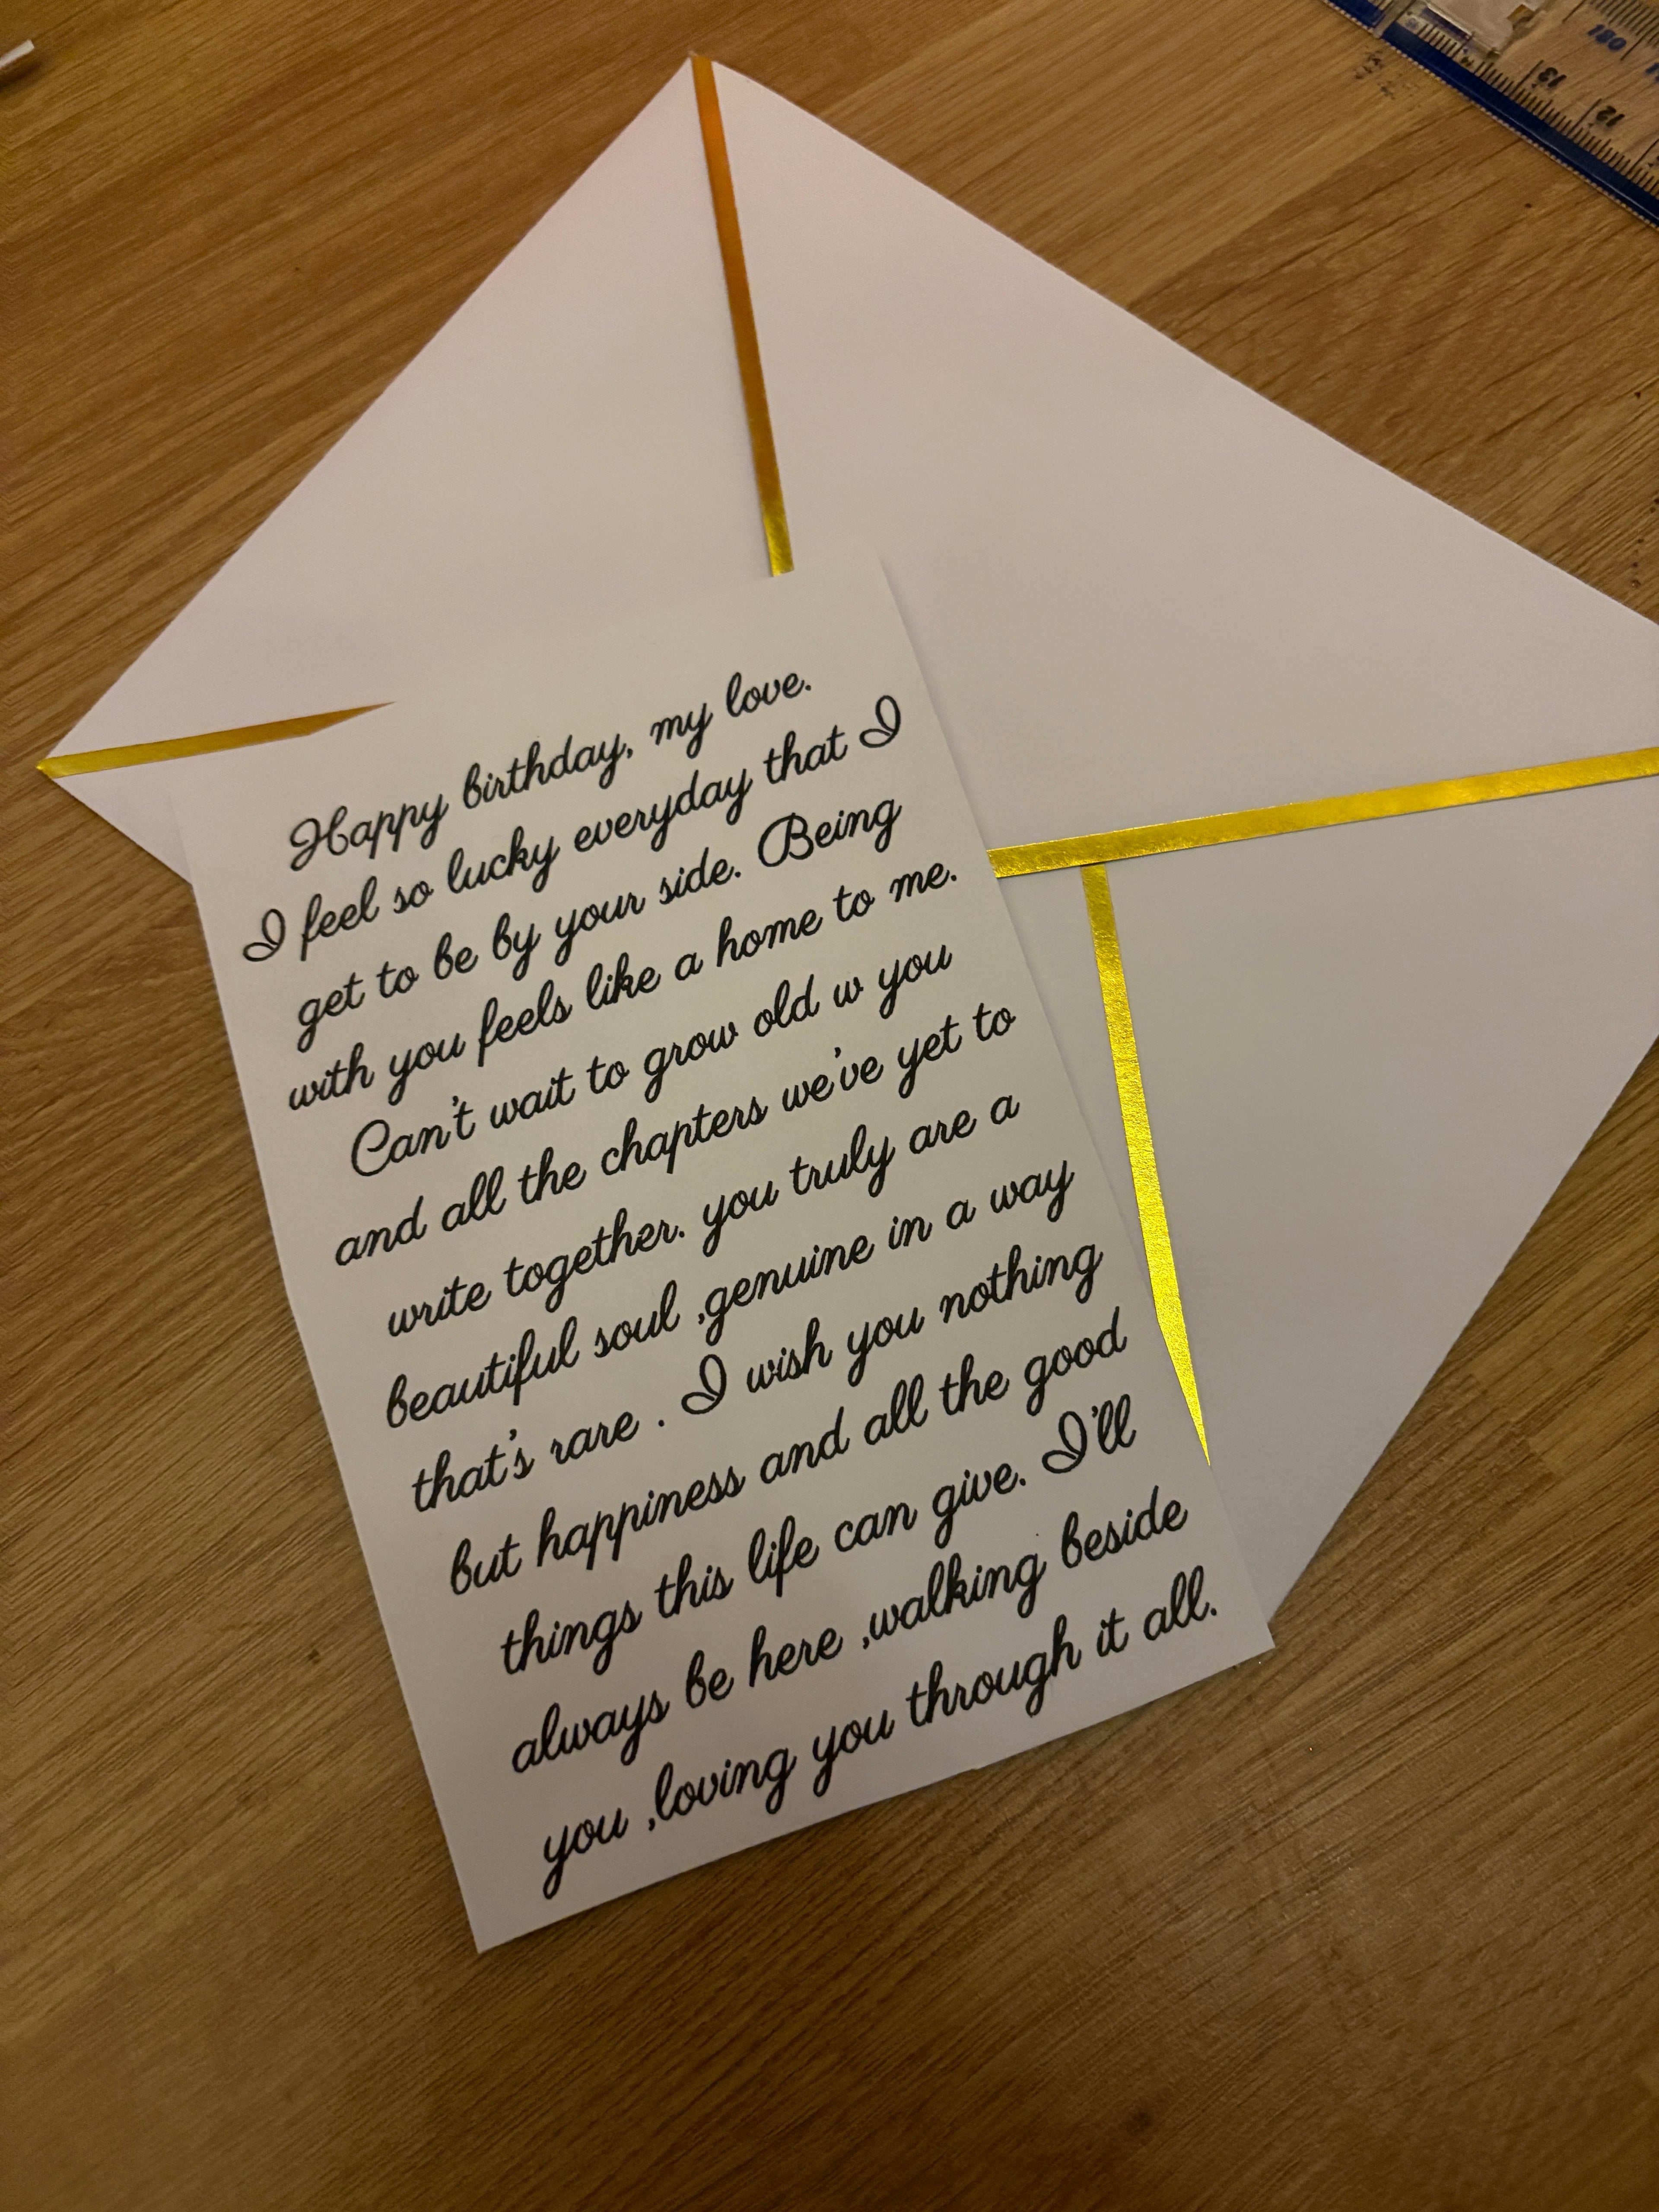 Happy birthday, my love.
I feel so lucky everyday that I
get to be by your side. Being
with you feels like a home to me.
Can't wait to grow old w you
and all the chapters we've yet to
write together. you truly are a
beautiful soul ,genuine in a way
that's rare . I wish you nothing
but happiness and all the good
things this life can give. I'll
always be here ,walking beside
you ,loving you through it all.
180
13
12